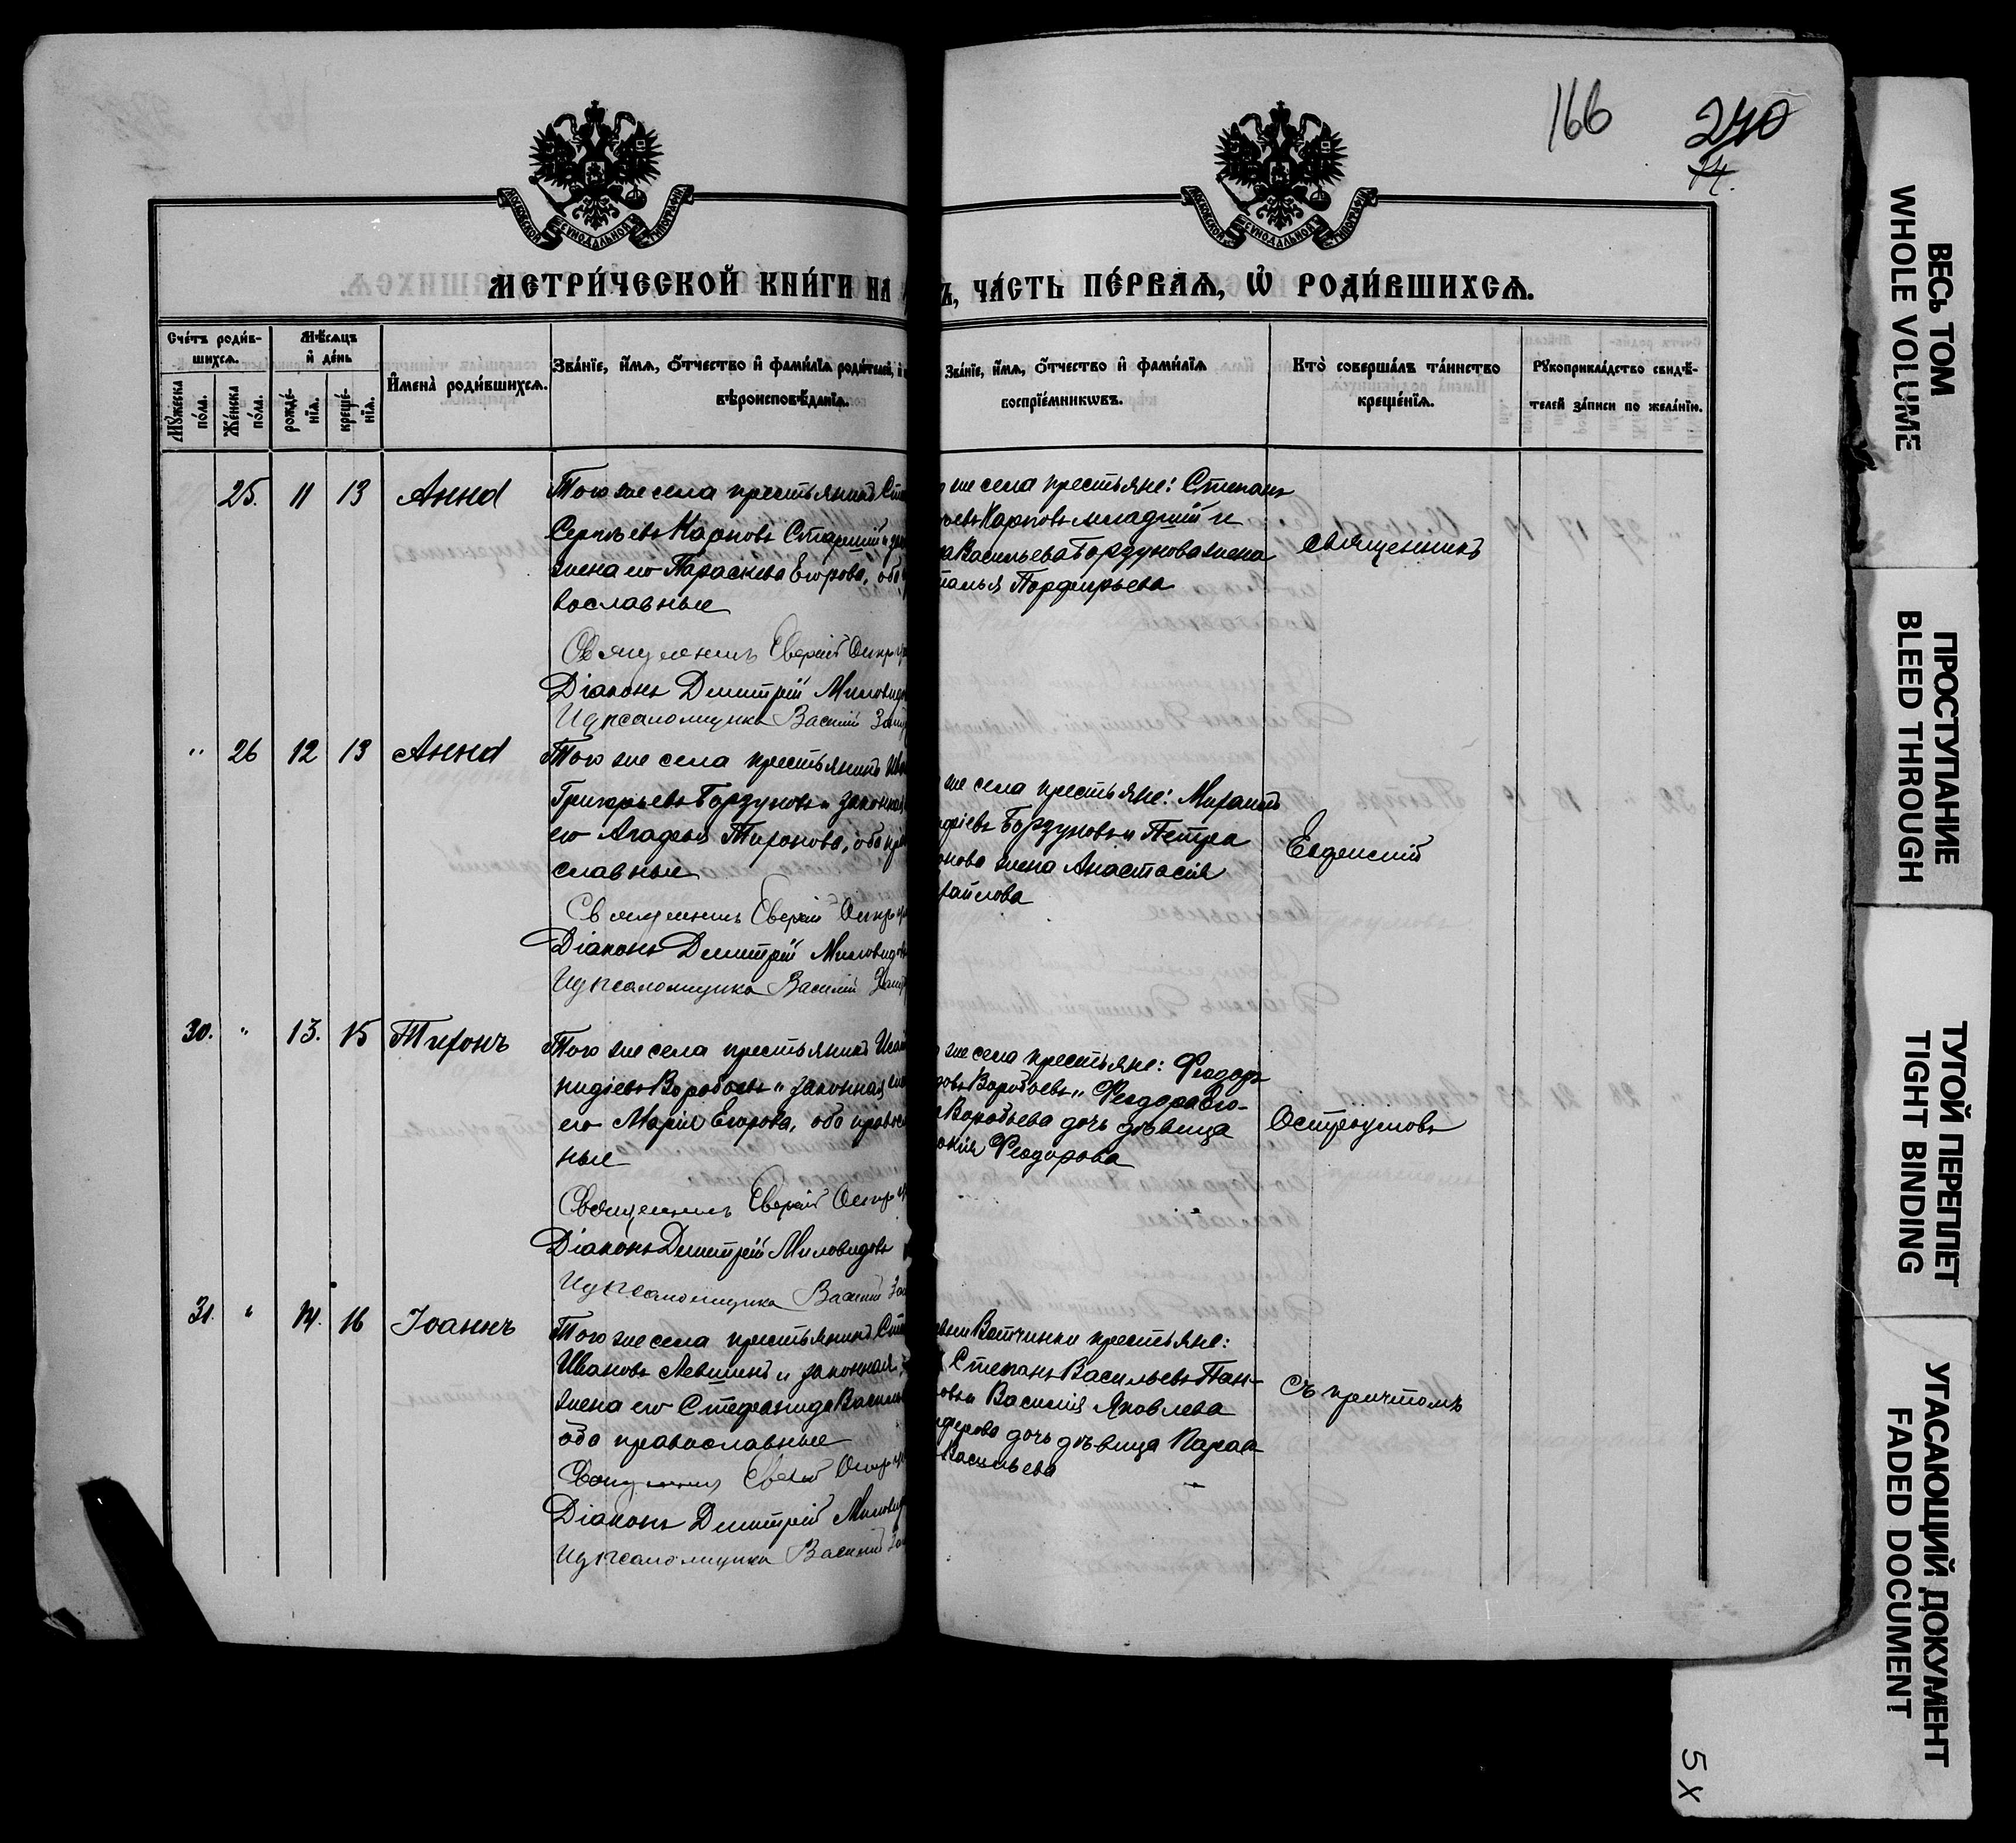 166
240
14.
МОСКОВСКОЙ СѴНОДАЛЬНОЙ ТИПОГРАФІИ
МОСКОВСКОЙ СѴНОДАЛЬНОЙ ТИПОГРАФІИ
МЕТРИ́ЧЕСКОЙ КНИ́ГИ НА
Ъ, ЧА́СТЬ ПЕ́РВАѦ, Ѡ҆ РОДИ́ВШИХСѦ.
Сче́тъ роди́в-
шихсѧ.
Мꙋ́жеска
по́ла.
Же́нска
по́ла.
Мѣ́сѧцъ
и҆ де́нь
рожде́-
нїѧ.
креще́-
нїѧ.
И҆мена̀ роди́вшихсѧ.
Зва́нїе, и҆́мѧ, ѻ҆́тчество и҆ фами́лїѧ роди́телей, и҆
вѣроисповѣ́данїѧ.
Зва́нїе, и҆́мѧ, ѻ҆́тчество и҆ фами́лїѧ
воспрїе́мникѡвъ.
Кто̀ соверша́лъ та́инство
креще́нїѧ.
Рꙋкоприкла́дство свидѣ́-
телей за́писи по жела́нїю.
25. 11 13 Анна
Того же села крестьянинъ Ст
Сергѣевъ Карповъ Старшій и
жена его Параскева Егорова, оба
вославные
Священникъ Евгеній Остр
Діаконъ Димитрій Миловидо
И д псаломщика Василій
же села крестьяне: Степанъ
Карповъ младшій и
Васильева Бордунова жена
талья Порфирьева
священникъ
" 26 12 13 Анна
Того же села крестьянинъ Ив
Григорьевъ Бордуновъ и законная
его Агафья Тихонова, оба пра
славные
Священникъ Евгеній Остр
Діаконъ Димитрій Миловидовъ
И д псаломщика Василій
же села крестьяне:
Бордуновъ и Петра
жена Анастасія
хайлова
Евгеній
30. " 13. 15 Тихонъ
Того же села крестьянинъ
нидіевъ Воробьевъ и законная
его Марія Егорова, оба правосл
ные
Священникъ Евгеній Остр
Діаконъ Димитрій Миловидовъ
И д псаломщика Василій
же села крестьяне: Ѳеодоръ
Воробьевъ и Ѳеодора
Воробьева дочь дѣвица
Ѳеодорова
Остроумовъ
31. " 14. 16 Іоаннъ
Того же села крестьянинъ Ст
Ивановъ Левшинъ и законная
жена его Стефанида Василь
оба православные
Священникъ Евгеній Остр
Діаконъ Димитрій Миловид
И д псаломщика Василій
Вотчинки крестьяне:
Степанъ Васильевъ Пан-
и Василія Яковлева
ферова дочь дѣвица Параск
Васильева
съ причтомъ
ВЕСЬ ТОМ
WHOLE VOLUME
ПРОСТУПАНИЕ
BLEED THROUGH
ТУГОЙ ПЕРЕПЛЕТ
TIGHT BINDING
УГАСАЮЩИЙ ДОКУМЕНТ
FADED DOCUMENT
5X